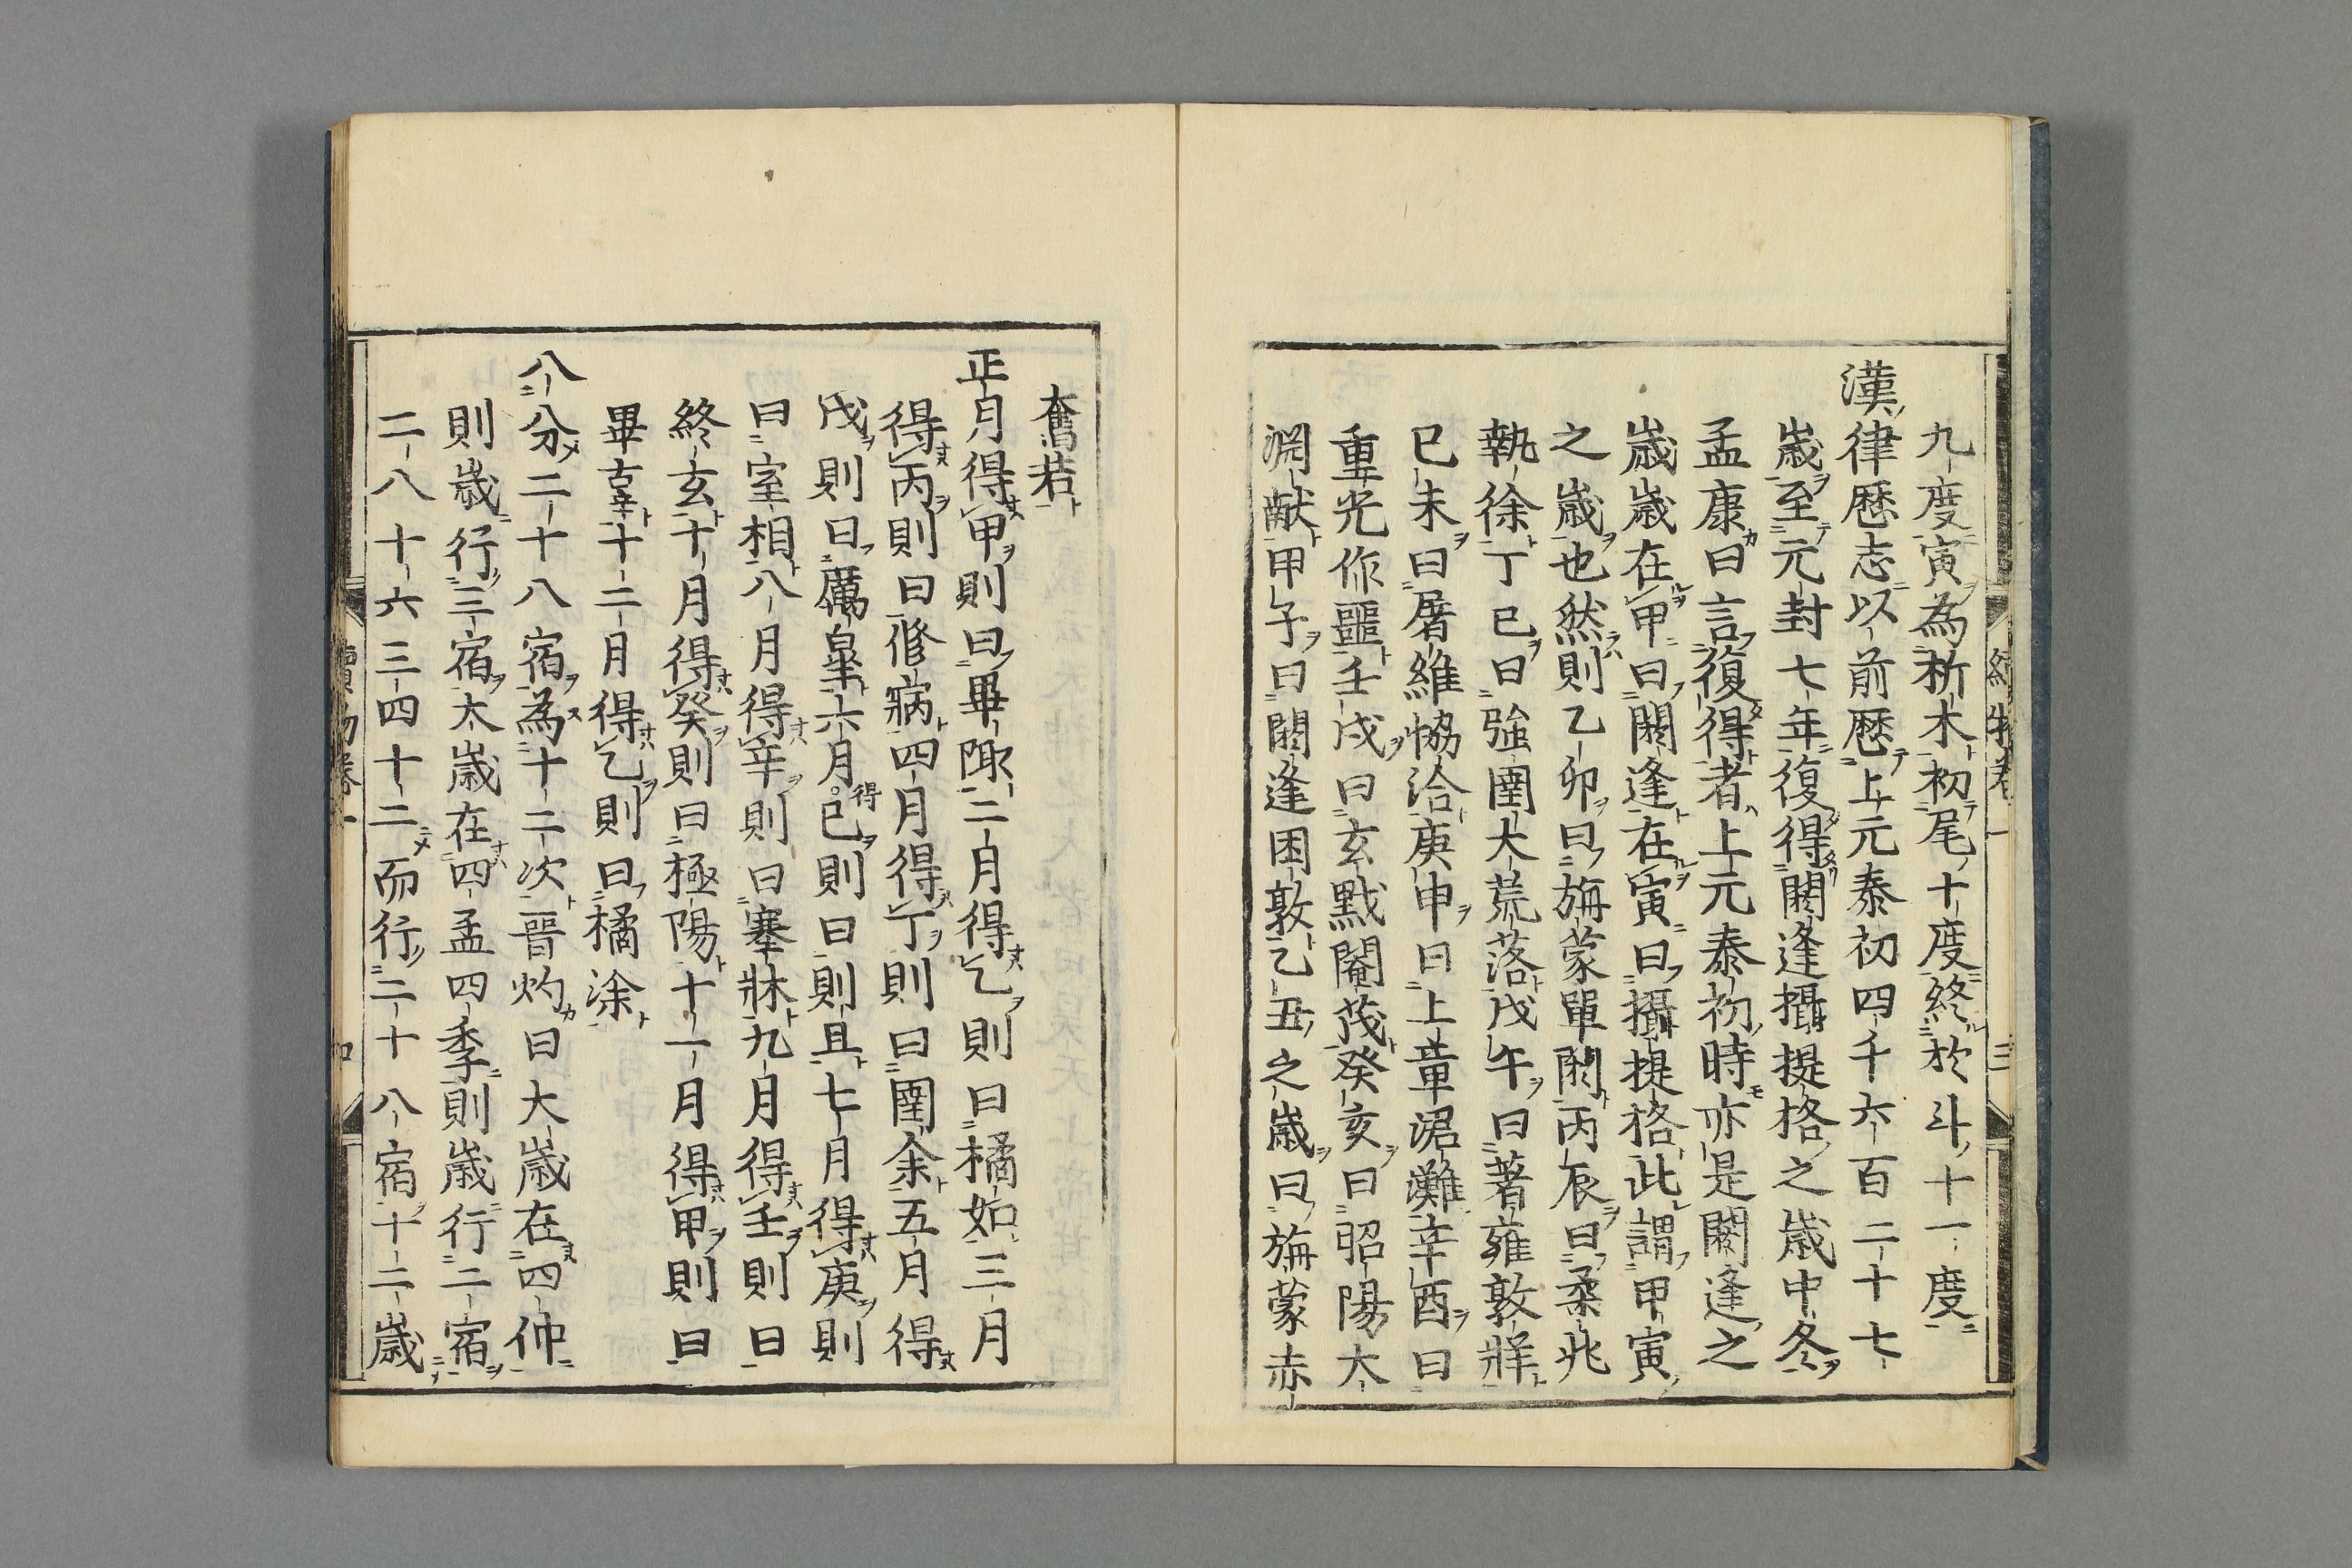 九度寅為析木初尾十度終於斗十一度
漢律歷志以前歷上元泰初四千六百二十七
歲至元封七年復得閼逢攝提格之歲中冬
孟康曰言復得者上元泰初時亦是閼逢之
歲歲在甲曰閼逢在寅曰攝提格此謂甲寅
之歲也然則乙卯曰旃蒙單閼丙辰曰柔兆
執徐丁巳曰強圉大荒落戊午曰著雍敦牂
巳未曰屠維協洽庚申曰上章涒灘辛酉曰
重光作噩壬戌曰玄黓閹茂癸亥曰昭陽大
淵献甲子曰閼逢困敦乙丑之歲曰旃蒙赤
奮若
正月得甲則曰畢陬二月得乙則曰橘如三月
得丙則曰修病四月得丁則曰圉余五月得
戊則曰厲皐六月得己則曰則且七月得庚則
曰室相八月得辛則曰塞牀九月得壬則曰
終玄十月得癸則曰極陽十一月得甲則曰
畢辜十二月得乙則曰橘涂
八分二十八宿為十二次晉灼曰大歲在四仲
則歲行三宿太歲在四孟四季則歲行二宿
二八十六三四十二而行二十八宿十二歲